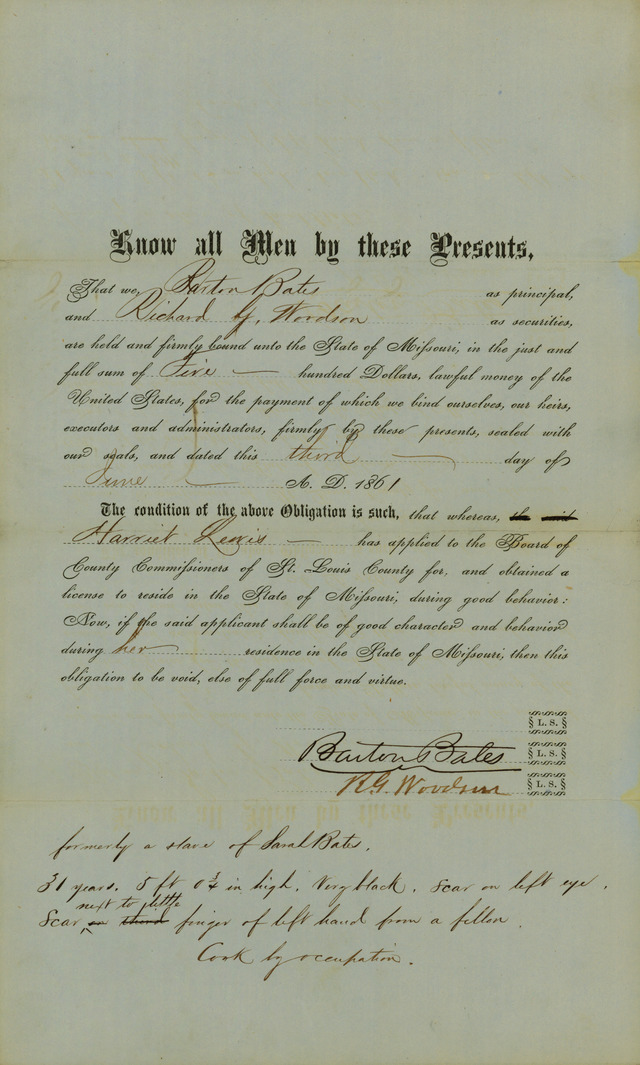 Know all Men by these Presents,
That we, Barton Bates as principal,
and Richard G. Woodson as securities,
are held and firmly bound unto the State of Missouri, in the just and
full sum of Five hundred Dollars, lawful money of the
United States, for the payment of which we bind ourselves, our heirs,
executors and administrators, firmly by these presents, sealed with
our seals, and dated this third day of
June A. D. 1861
The condition of the above Obligation is such, that whereas, the said
Harriet Lewis has applied to the Board of
County Commissioners of St. Louis County for, and obtained a
license to reside in the State of Missouri, during good behavior:
Now, if the said applicant shall be of good character and behavior
during her residence in the State of Missouri, then this
obligation to be void, else of full force and virtue.
§ L. S. §
Barton Bates § L. S. §
R G Woodson § L. S. §
formerly a slave of Sarah Bates.
31 years. 5 ft 0 3/4 in high. Very black. Scar on left eye.
next to little
Scar on third finger of left hand from a fellon.
Cook by occupation.